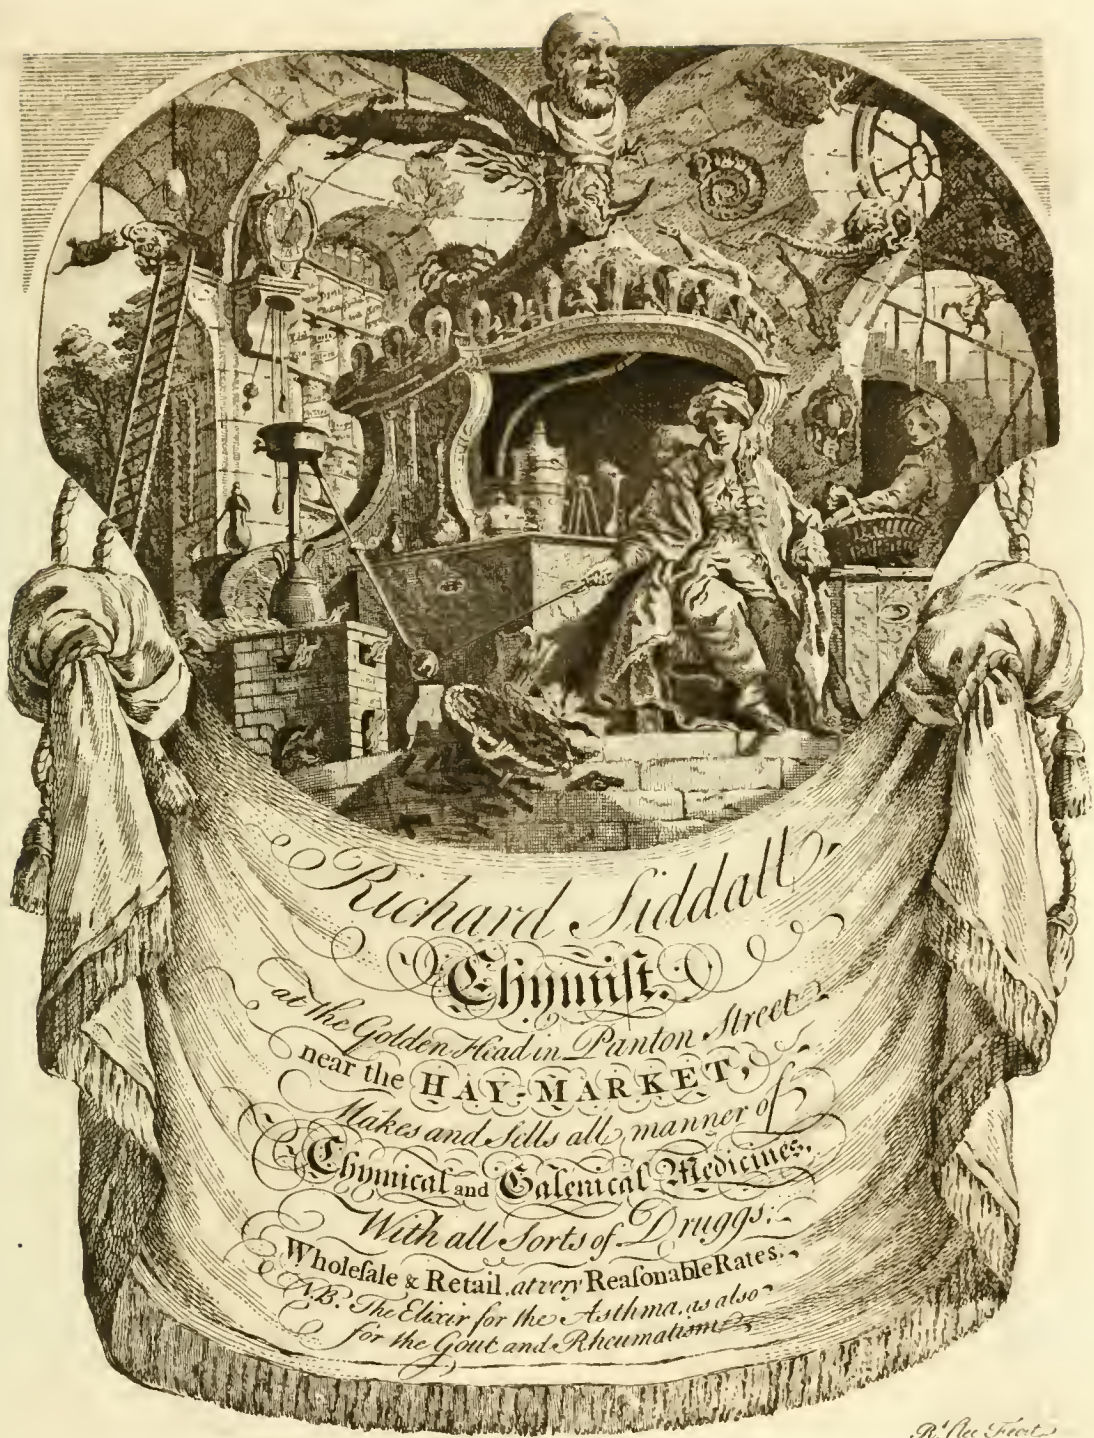 Richard Siddall,
Chymiſt.
at the Golden Head in Panton Street
near the HAY-MARKET,
Makes and Sells all manner of
Chymical and Galenical Medicines,
With all Sorts of Druggs:
Wholeſale & Retail, at very Reaſonable Rates.
N.B. The Elixir for the Asthma, as also
for the Gout and Rheumatism
Fecit